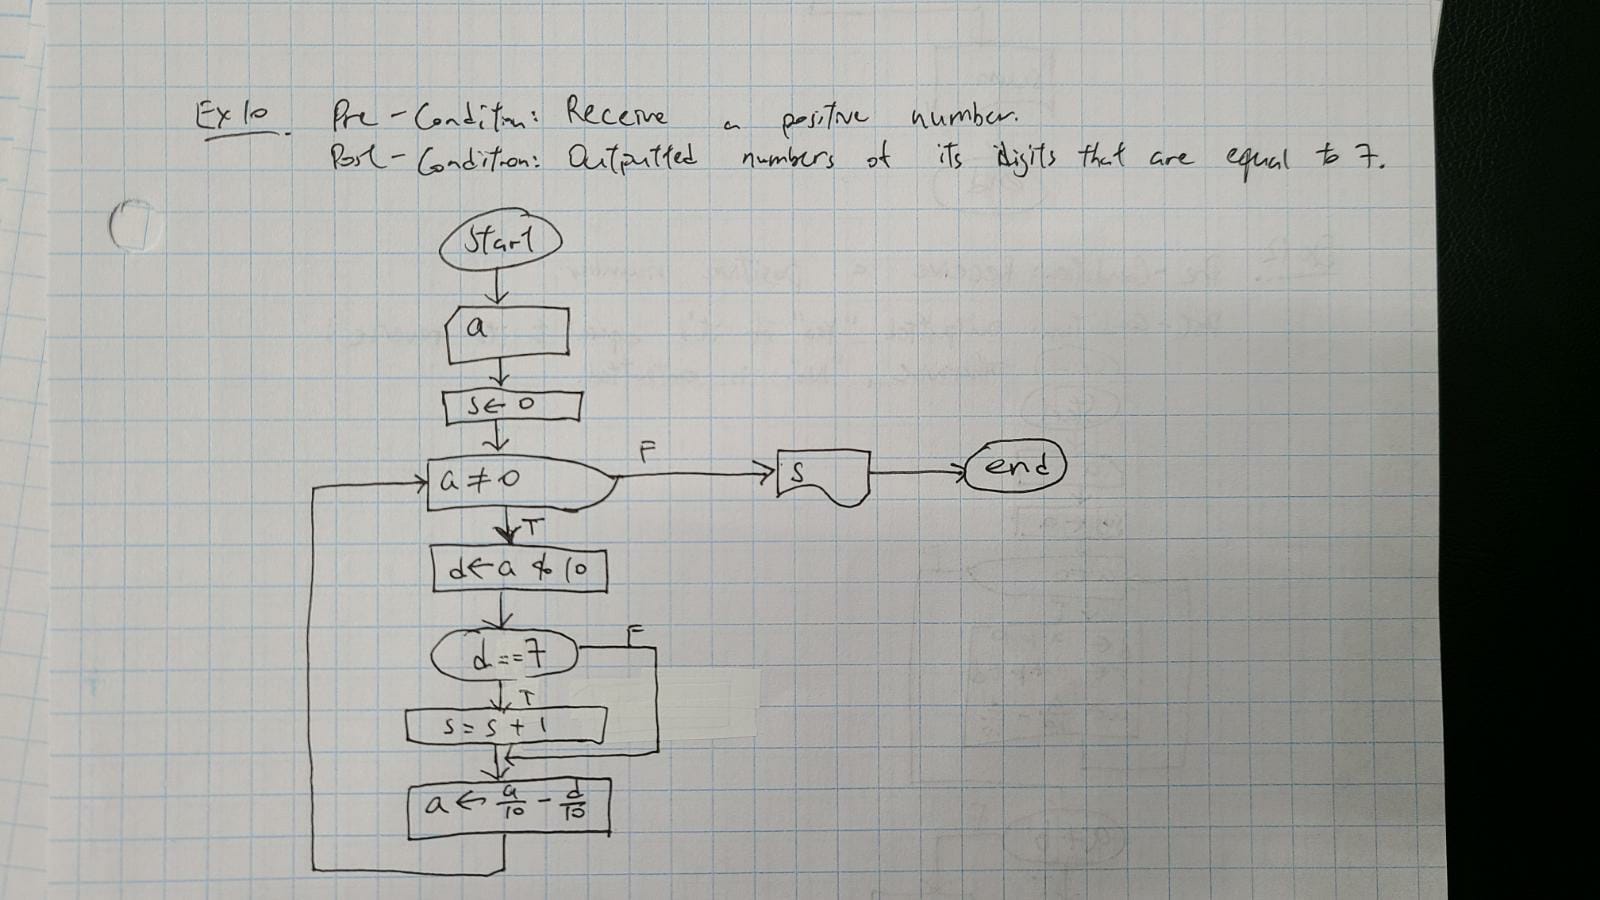 Ex 10. Pre-Condition: Receive a positive number.
Post-Condition: Outputted numbers of its digits that are equal to 7.
Start
a
s ← 0
a ≠ 0
F
s
end
T
d ← a % 10
d == 7
F
T
s = s + 1
a ← a/10 - d/10